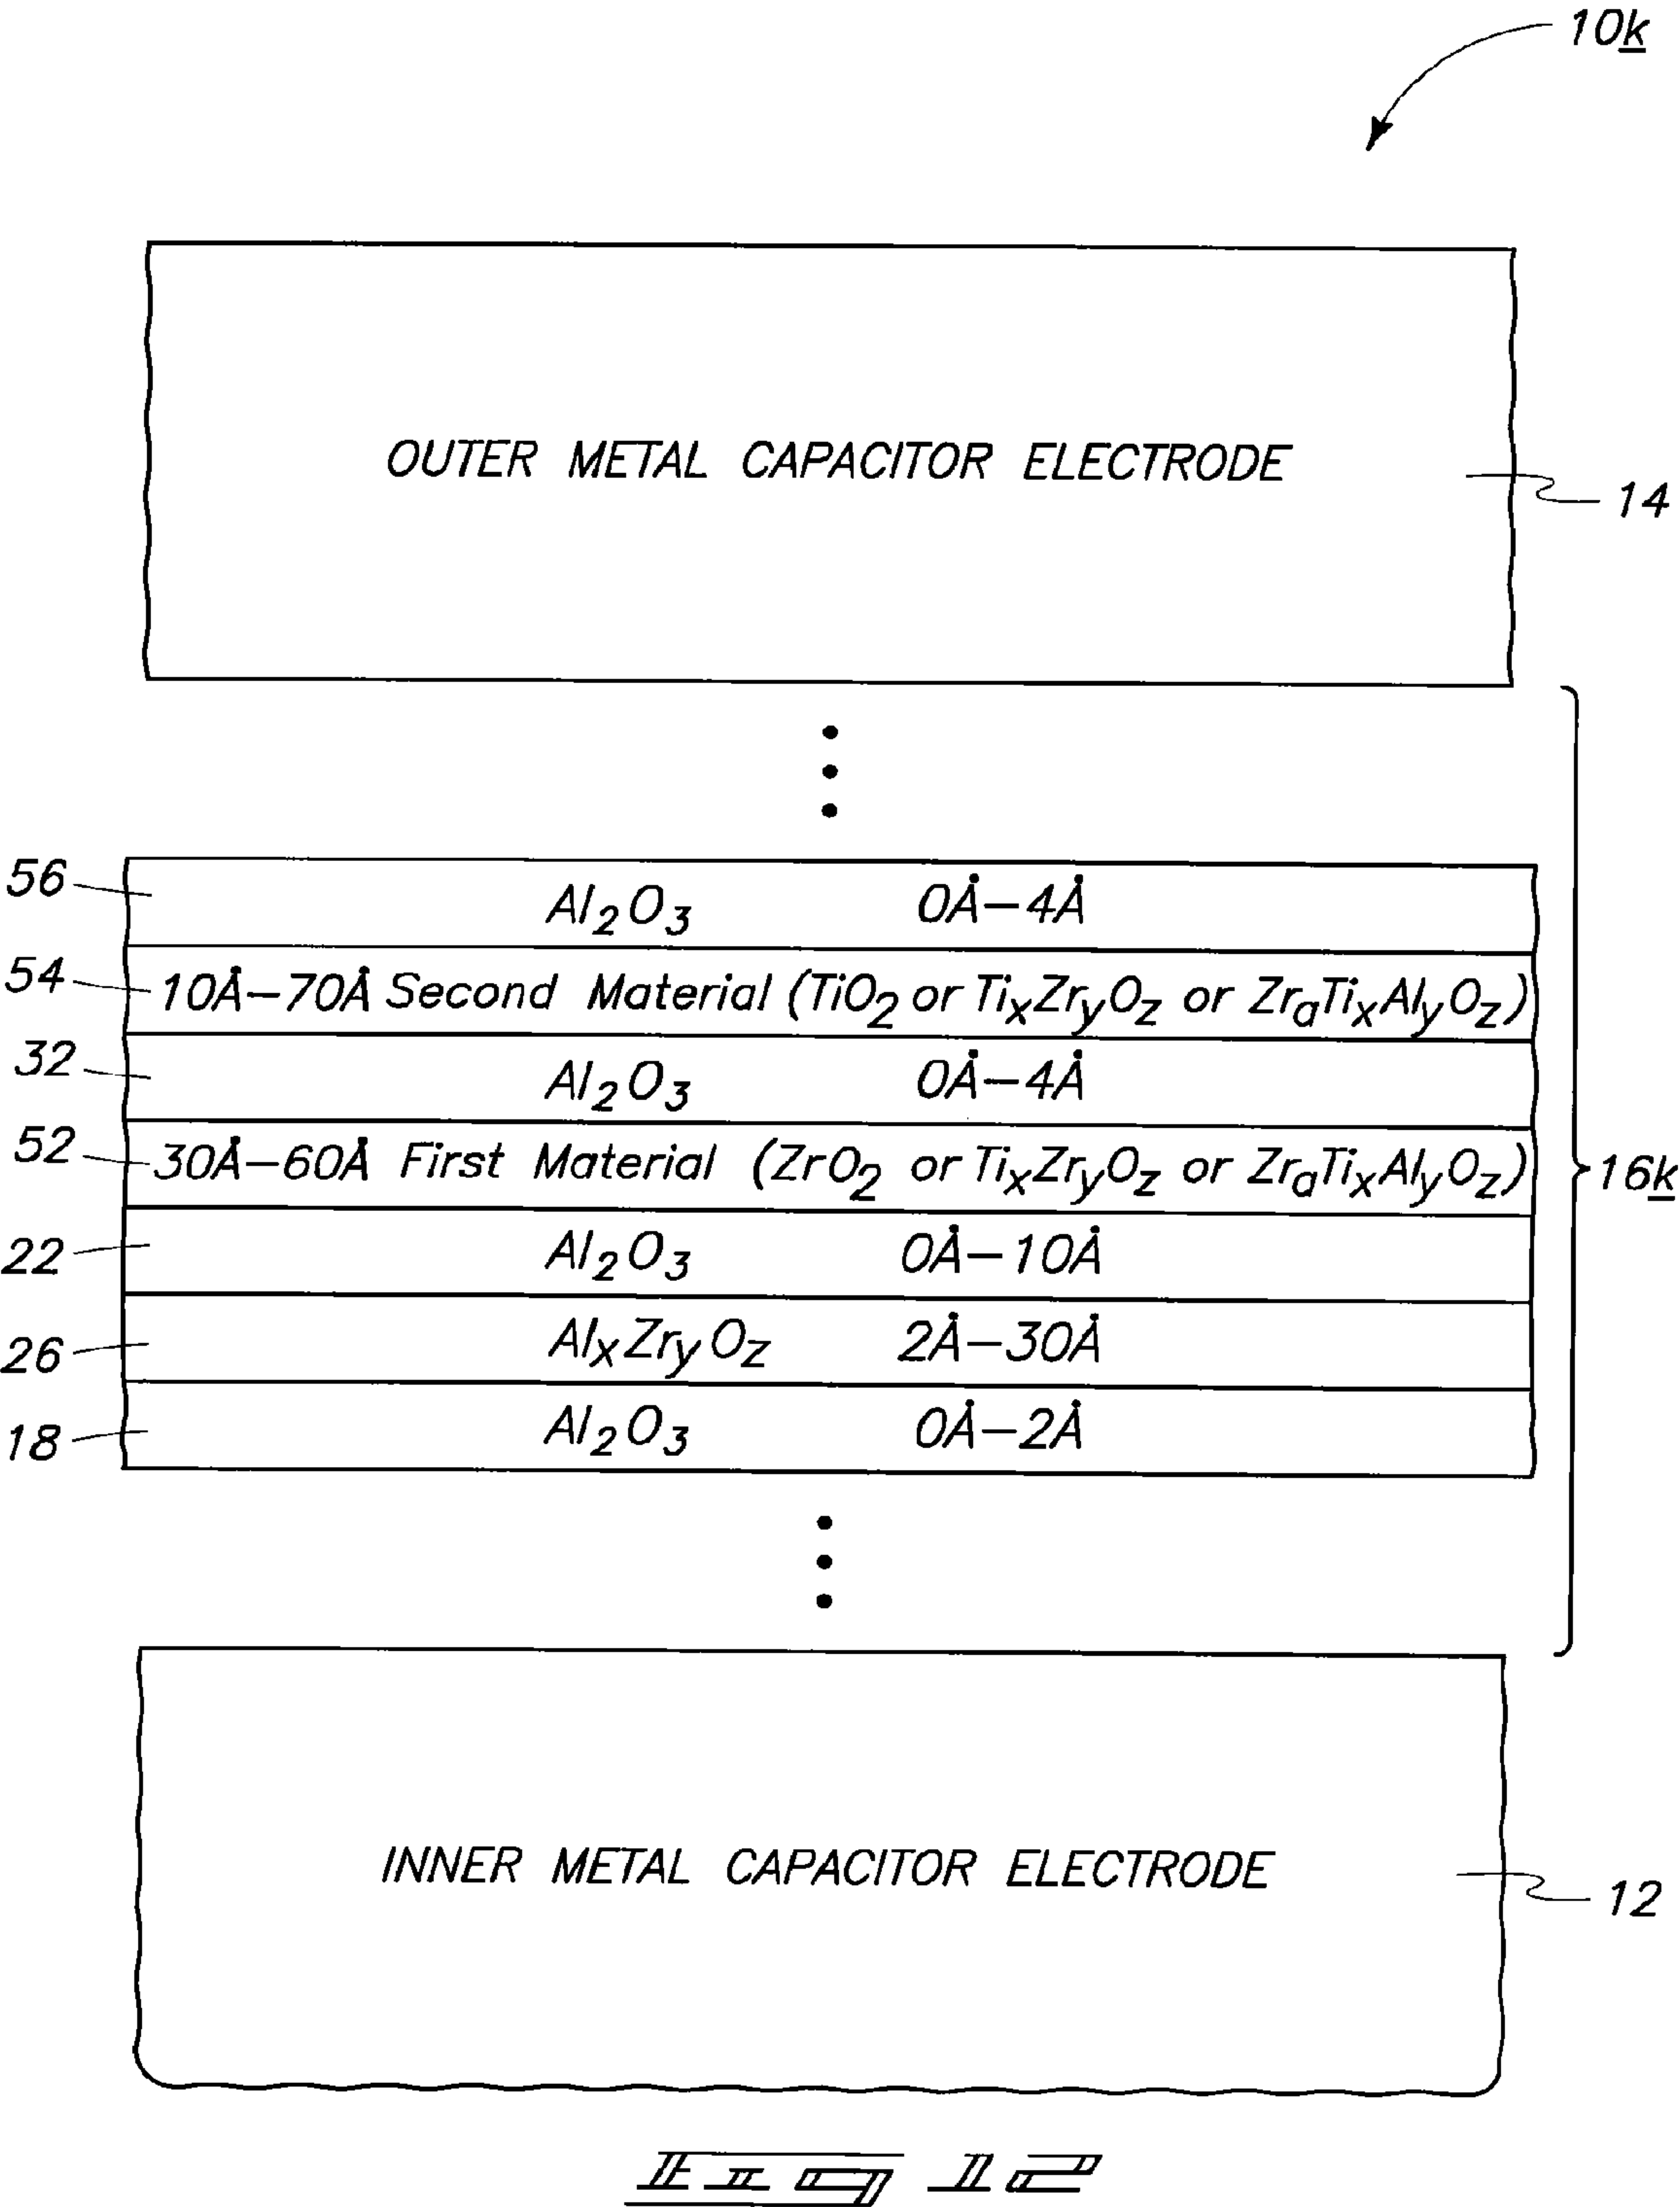 10k
OUTER METAL CAPACITOR ELECTRODE
14
56 Al₂O₃ 0Å–4Å
54 10Å–70Å Second Material (TiO₂ or TiₓZrᵧO_z or ZrₐTiₓAlᵧO_z)
32 Al₂O₃ 0Å–4Å
52 30Å–60Å First Material (ZrO₂ or TiₓZrᵧO_z or ZrₐTiₓAlᵧO_z)
16k
22 Al₂O₃ 0Å–10Å
26 AlₓZrᵧO_z 2Å–30Å
18 Al₂O₃ 0Å–2Å
INNER METAL CAPACITOR ELECTRODE
12
Fig 12